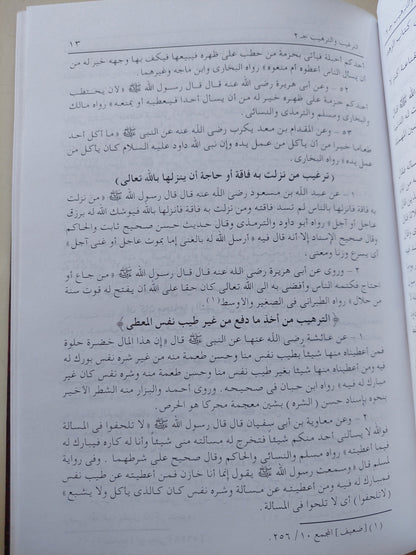 الترغيب والترهيب جـ٢ ١٣
أحدكم أحبلة فيأتى بحزمة من حطب على ظهره فيبيعها فيكف بها وجهه خير له من
أن يسأل الناس أعطوه أم منعوه» رواه البخارى وابن ماجه وغيرهما.
٥٢ – وعن أبى هريرة رضى الله عنه قال قال رسول الله ﷺ «لأن يحتطب
أحدكم حزمة على ظهره خير له من أن يسأل أحدا فيعطيه أو يمنعه» رواه مالك
والبخارى ومسلم والترمذى والنسائى.
٥٣ – وعن المقدام بن معد يكرب رضى الله عنه عن النبى ﷺ «ما اكل احد
طعاما خيرا من أن يأكل من عمل يده وإن نبى الله داود عليه السلام كان يأكل من
عمل يده» رواه البخارى.
(ترغيب من نزلت به فاقة أو حاجة أن ينزلها بالله تعالى)
١ – عن عبد الله بن مسعود رضى الله عنه قال قال رسول الله ﷺ «من نزلت
به فاقه فانزلها بالناس لم تسد فاقته ومن نزلت به فاقة فانزلها بالله فيوشك الله له برزق
عاجل أو آجل» رواه أبو داود والترمذى وقال حديث حسن صحيح ثابت والحاكم
وقال صحيح الإسناد إلا أنه قال فيه «أرسل الله له بالغنى إما بموت عاجل أو غنى آجل»
أى يسرع وزنا ومعنى.
٢ – وروى عن أبى هريرة رضى الله عنه قال قال رسول الله ﷺ «من جاع أو
احتاج فكتمه الناس وأفضى به الى الله تعالى كان حقا على الله أن يفتح له قوت سنة
من حلال» رواه الطبرانى فى الصغير والأوسط(١).
﴿ الترهيب من أخذ ما دفع من غير طيب نفس المعطى ﴾
١ – عن عائشة رضى الله عنها عن النبى ﷺ قال «إن هذا المال خضرة حلوة
فمن أعطيناه منها شيئا بطيب نفس منا وحسن طعمة منه من غير شره نفس بورك له
فيه ومن أعطيناه منها شيئا بغير طيب نفس منا وحسن طعمة منه وشره نفس كان غير
مبارك له فيه» رواه ابن حبان فى صحيحه. وروى أحمد والبزار منه الشطر الأخير
بنحوه بإسناد حسن (الشره) بشين معجمة محركا هو الحرص.
٢ – وعن معاوية بن أبى سفيان قال قال رسول الله ﷺ «لا تلحفوا فى المسألة
فوالله لا يسألنى أحد منكم شيئا فتخرج له مسألته منى شيئا وأنا له كاره فيبارك له
فيما أعطيته» رواه مسلم والنسائى والحاكم وقال صحيح على شرطهما. وفى رواية
لمسلم قال «وسمعت رسول الله ﷺ يقول إنما أنا خازن فمن أعطيته عن طيب نفس
مبارك له فيه ومن أعطيته عن مسألة وشره نفس كان كالذى يأكل ولا يشبع»
(لاتلحفوا) أى لا تلحوا فى المسألة.
(١) [ضعيف] المجمع ١٠/ ٢٥٦.